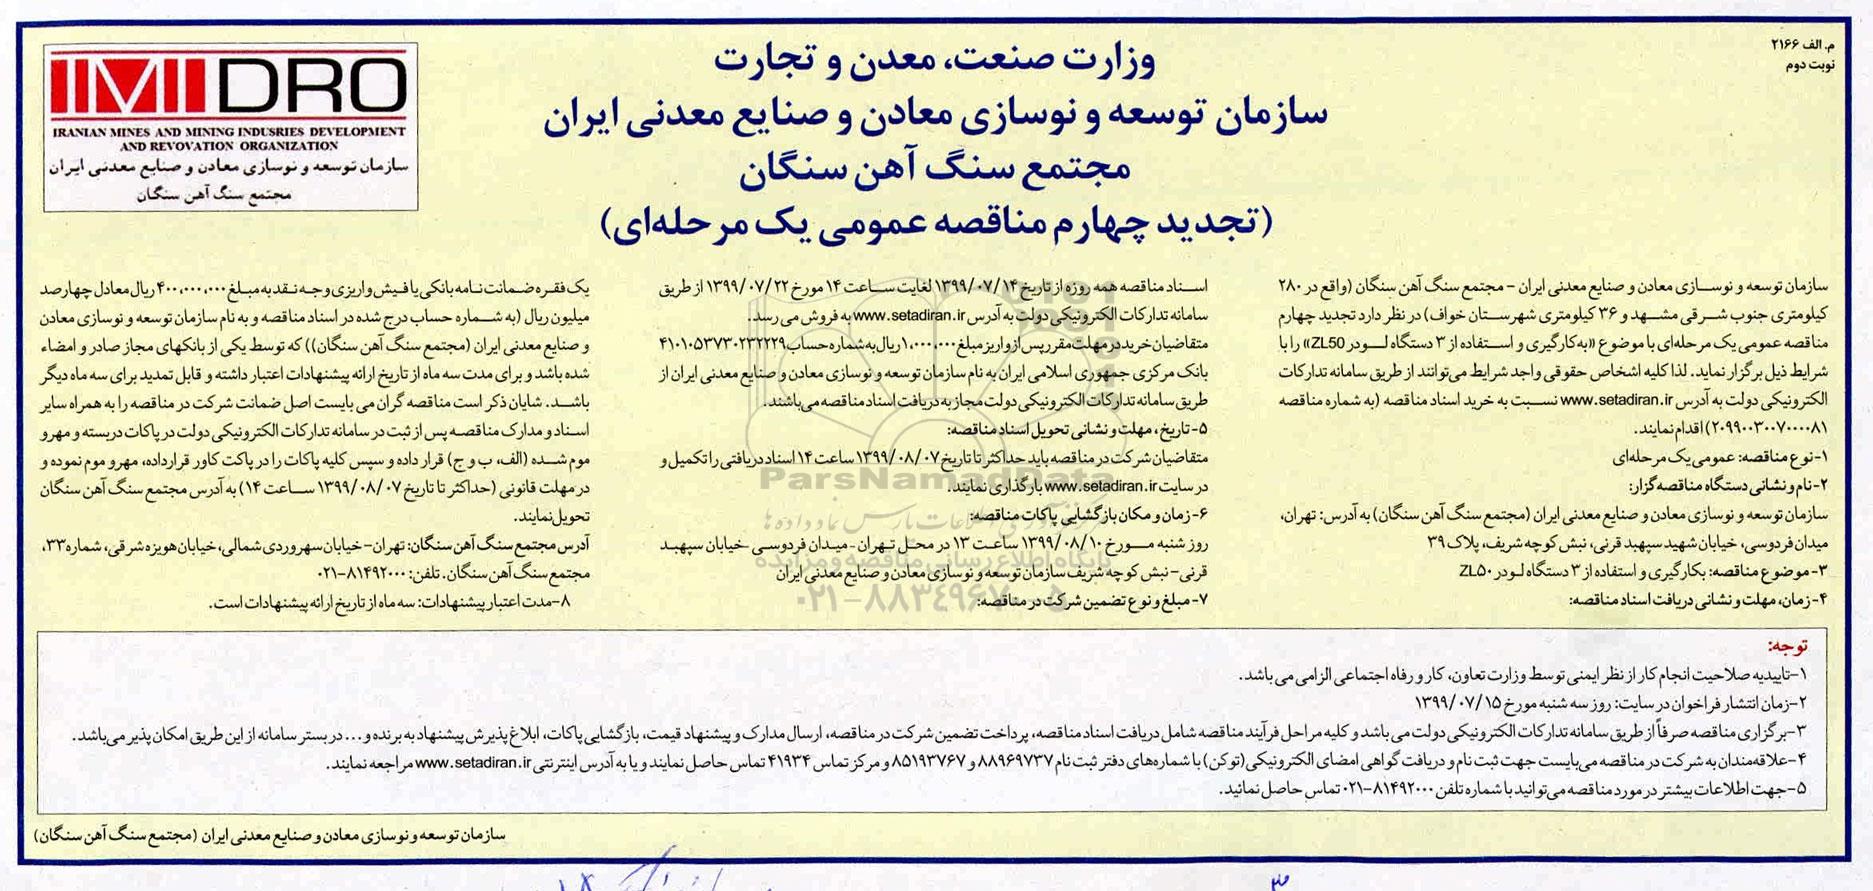 م. الف ۲۱۶۶
نوبت دوم
IMIDRO
IRANIAN MINES AND MINING INDUSRIES DEVELOPMENT
AND REVOVATION ORGANIZATION
سازمان توسعه و نوسازی معادن و صنایع معدنی ایران
مجتمع سنگ آهن سنگان
وزارت صنعت، معدن و تجارت
سازمان توسعه و نوسازی معادن و صنایع معدنی ایران
مجتمع سنگ آهن سنگان
(تجدید چهارم مناقصه عمومی یک مرحله‌ای)
سازمان توسعه و نوسـازی معادن و صنایع معدنی ایران – مجتمع سنگ آهن سنگان (واقع در ۲۸۰
کیلومتری جنوب شـرقی مشـهد و ۳۶ کیلومتری شهرسـتان خواف) در نظر دارد تجدید چهارم
مناقصه عمومی یک مرحله‌ای با موضوع «به‌کارگیری و اسـتفاده از ۳ دستگاه لـودر ZL50» را با
شرایط ذیل برگزار نماید. لذا کلیه اشخاص حقوقی واجد شرایط می‌توانند از طریق سامانه تدارکات
الکترونیکی دولت به آدرس www.setadiran.ir نسـبت به خرید اسناد مناقصه (به شماره مناقصه
۲۰۹۹۰۰۳۰۰۷۰۰۰۰۸۱) اقدام نمایند.
۱-نوع مناقصه: عمومی یک مرحله‌ای
۲-نام و نشانی دستگاه مناقصه‌گزار:
سازمان توسعه و نوسازی معادن و صنایع معدنی ایران (مجتمع سنگ آهن سنگان) به آدرس: تهران،
میدان فردوسی، خیابان شهید سپهبد قرنی، نبش کوچه شریف، پلاک ۳۹
۳-موضوع مناقصه: بکارگیری و استفاده از ۳ دستگاه لـودر ZL۵۰
۴-زمان، مهلت و نشانی دریافت اسناد مناقصه:
اسـناد مناقصه همه روزه از تاریخ ۱۳۹۹/۰۷/۱۴ لغایت سـاعت ۱۴ مورخ ۱۳۹۹/۰۷/۲۲ از طریق
سامانه تدارکات الکترونیکی دولت به آدرس www.setadiran.ir به فروش می رسد.
متقاضیان خرید در مهلت مقرر پس از واریز مبلغ ۱،۰۰۰،۰۰۰ ریال به شماره حساب ۴۱۰۱۰۵۳۷۳۰۲۳۲۲۲۹
بانک مرکزی جمهوری اسلامی ایران به نام سازمان توسعه و نوسازی معادن و صنایع معدنی ایران از
طریق سامانه تدارکات الکترونیکی دولت مجاز به دریافت اسناد مناقصه می‌باشند.
۵-تاریخ، مهلت و نشانی تحویل اسناد مناقصه:
متقاضیان شرکت در مناقصه باید حداکثر تا تاریخ ۱۳۹۹/۰۸/۰۷ ساعت ۱۴ اسناد دریافتی را تکمیل و
در سایت www.setadiran.ir بارگذاری نمایند.
۶-زمان و مکان بازگشایی پاکات مناقصه:
روز شنبه مـورخ ۱۳۹۹/۰۸/۱۰ ساعت ۱۳ در محـل تـهران - میدان فردوسـی -خیابان سپهبـد
قرنی-نبش کوچه شریف سازمان توسعه و نوسازی معادن و صنایع معدنی ایران
۷-مبلغ و نوع تضمین شرکت در مناقصه:
یک فقـره ضمـانت‌نامه بانکی یا فیش واریزی وجـه نقـد به مبلـغ ۴۰۰،۰۰۰،۰۰۰ ریال معادل چهارصد
میلیون ریال (به شـماره حساب درج شده در اسناد مناقصه و به نام سازمان توسعه و نوسازی معادن
و صنایع معدنی ایران (مجتمع سنگ آهن سنگان)) که توسط یکی از بانکهای مجاز صادر و امضاء
شده باشد و برای مدت سه ماه از تاریخ ارائه پیشنهادات اعتبار داشته و قابل تمدید برای سه ماه دیگر
باشـد. شایان ذکر است مناقصه گران می بایست اصل ضمانت شرکت در مناقصه را به همراه سایر
اسناد و مدارک مناقصـه پس از ثبت در سامانه تدارکات الکترونیکی دولت در پاکات دربسته و مهر و
موم شـده (الف، ب و ج) قرار داده و سپس کلیه پاکات را در پاکت کاور قرارداده، مهر و موم نموده و
در مهلت قانونی (حداکثر تا تاریخ ۱۳۹۹/۰۸/۰۷ سـاعت ۱۴) به آدرس مجتمع سنگ آهن سنگان
تحویل نمایند.
آدرس مجتمع سنگ آهن سنگان: تهران-خیابان سهروردی شمالی، خیابان هویزه شرقی، شماره ۳۳،
مجتمع سنگ آهن سنگان. تلفن: ۸۱۴۹۲۰۰۰-۰۲۱
۸-مدت اعتبار پیشنهادات: سه ماه از تاریخ ارائه پیشنهادات است.
ParsNamadData
پایگاه اطلاع رسانی مناقصه و مزایده
۰۲۱-۸۸۳۴۹۶۷۰-۵
توجه:
۱-تاییدیه صلاحیت انجام کار از نظر ایمنی توسط وزارت تعاون، کار و رفاه اجتماعی الزامی می باشد.
۲-زمان انتشار فراخوان در سایت: روز سه شنبه مورخ ۱۳۹۹/۰۷/۱۵
۳-برگزاری مناقصه صرفاً از طریق سامانه تدارکات الکترونیکی دولت می باشد و کلیه مراحل فرآیند مناقصه شامل دریافت اسناد مناقصه، پرداخت تضمین شرکت در مناقصه، ارسال مدارک و پیشنهاد قیمت، بازگشایی پاکات، ابلاغ پذیرش پیشنهاد به برنده و... در بستر سامانه از این طریق امکان پذیر می باشد.
۴-علاقه‌مندان به شرکت در مناقصه می‌بایست جهت ثبت نام و دریافت گواهی امضای الکترونیکی (توکن) با شماره‌های دفتر ثبت نام ۸۸۹۶۹۷۳۷ و ۸۵۱۹۳۷۶۷ و مرکز تماس ۴۱۹۳۴ تماس حاصل نمایند و یا به آدرس اینترنتی www.setadiran.ir مراجعه نمایند.
۵-جهت اطلاعات بیشتر در مورد مناقصه می‌توانید با شماره تلفن ۸۱۴۹۲۰۰۰-۰۲۱ تماس حاصل نمائید.
سازمان توسعه و نوسازی معادن و صنایع معدنی ایران (مجتمع سنگ آهن سنگان)